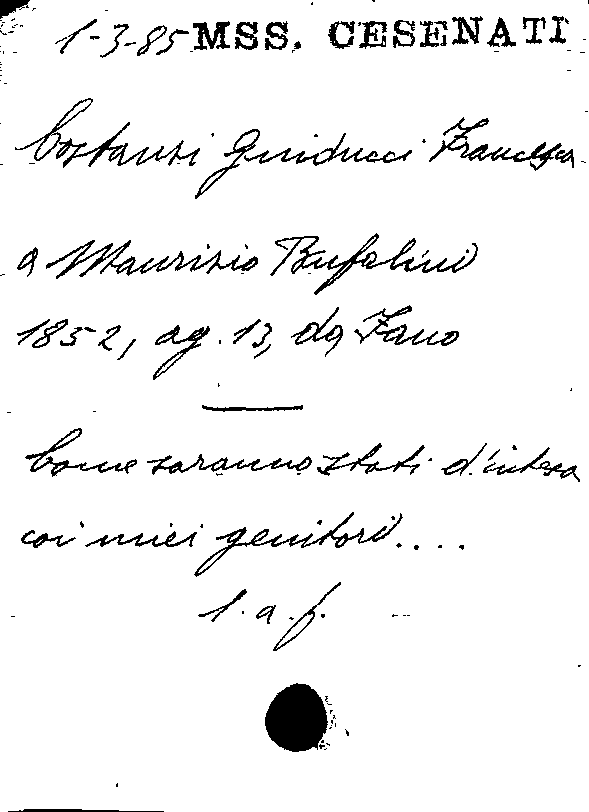 1-3-85 MSS. CESENATI
Costanzi Guiducci Francesca
a Maurizio Bufalini
1852, ag. 13, da Fano
Come saranno stati d'intesa
coi miei genitori....
l. a. f.